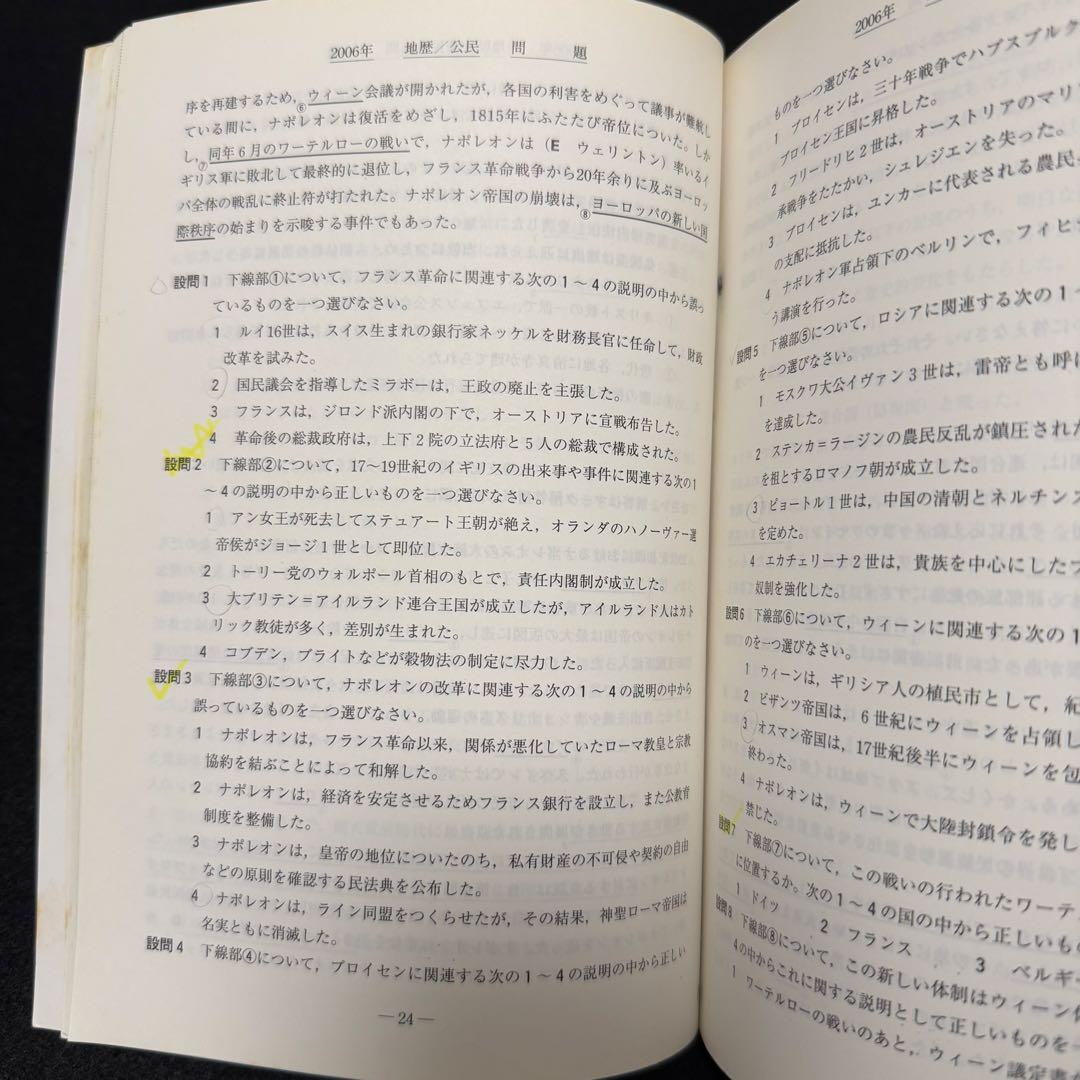 2006年 地歴／公民 問 題
序を再建するため，ウィーン会議が開かれたが，各国の利害をめぐって議事が難航し
⑥
ている間に，ナポレオンは復活をめざし，1815年にふたたび帝位についた。しか
し，同年6月のワーテルローの戦いで，ナポレオンは（E ウェリントン）率いるイ
⑦
ギリス軍に敗北して最終的に退位し，フランス革命戦争から20年余りに及ぶヨーロッ
パ全体の戦乱に終止符が打たれた。ナポレオン帝国の崩壊は，ヨーロッパの新しい国
⑧
際秩序の始まりを示唆する事件でもあった。
設問1 下線部①について，フランス革命に関連する次の1～4の説明の中から誤っ
ているものを一つ選びなさい。
1 ルイ16世は，スイス生まれの銀行家ネッケルを財務長官に任命して，財政
改革を試みた。
2 国民議会を指導したミラボーは，王政の廃止を主張した。
3 フランスは，ジロンド派内閣の下で，オーストリアに宣戦布告した。
4 革命後の総裁政府は，上下2院の立法府と5人の総裁で構成された。
設問2 下線部②について，17～19世紀のイギリスの出来事や事件に関連する次の1
～4の説明の中から正しいものを一つ選びなさい。
1 アン女王が死去してステュアート王朝が絶え，オランダのハノーヴァー選
帝侯がジョージ1世として即位した。
2 トーリー党のウォルポール首相のもとで，責任内閣制が成立した。
3 大ブリテン＝アイルランド連合王国が成立したが，アイルランド人はカト
リック教徒が多く，差別が生まれた。
4 コブデン，ブライトなどが穀物法の制定に尽力した。
設問3 下線部③について，ナポレオンの改革に関連する次の1～4の説明の中から
誤っているものを一つ選びなさい。
1 ナポレオンは，フランス革命以来，関係が悪化していたローマ教皇と宗教
協約を結ぶことによって和解した。
2 ナポレオンは，経済を安定させるためフランス銀行を設立し，また公教育
制度を整備した。
3 ナポレオンは，皇帝の地位についたのち，私有財産の不可侵や契約の自由
などの原則を確認する民法典を公布した。
4 ナポレオンは，ライン同盟をつくらせたが，その結果，神聖ローマ帝国は
名実ともに消滅した。
設問4 下線部④について，プロイセンに関連する次の1～4の説明の中から正しい
―24―
2006年
ものを一つ選びなさい。
1 プロイセンは，三十年戦争でハプスブルク
プロイセン王国に昇格した。
2 フリードリヒ2世は，オーストリアのマリ
承戦争をたたかい，シュレジエンを失った。
3 プロイセンは，ユンカーに代表される農民
の支配に抵抗した。
4 ナポレオン軍占領下のベルリンで，フィヒ
う講演を行った。
設問5 下線部⑤について，ロシアに関連する次の1～
を一つ選びなさい。
1 モスクワ大公イヴァン3世は，雷帝とも呼
を達成した。
2 ステンカ＝ラージンの農民反乱が鎮圧された
を祖とするロマノフ朝が成立した。
3 ピョートル1世は，中国の清朝とネルチンス
を定めた。
4 エカチェリーナ2世は，貴族を中心にした
奴制を強化した。
設問6 下線部⑥について，ウィーンに関連する次の1
のを一つ選びなさい。
1 ウィーンは，ギリシア人の植民市として，紀
2 ビザンツ帝国は，6世紀にウィーンを占領し
3 オスマン帝国は，17世紀後半にウィーンを包
終わった。
4 ナポレオンは，ウィーンで大陸封鎖令を発し
禁じた。
設問7 下線部⑦について，この戦いの行われたワーテ
に位置するか。次の1～4の国の中から正しいもの
1 ドイツ 2 フランス 3 ベルギ
設問8 下線部⑧について，この新しい体制はウィーン体
4の中からこれに関する説明として正しいものを
1 ワーテルローの戦いのあと，ウィーン議定書